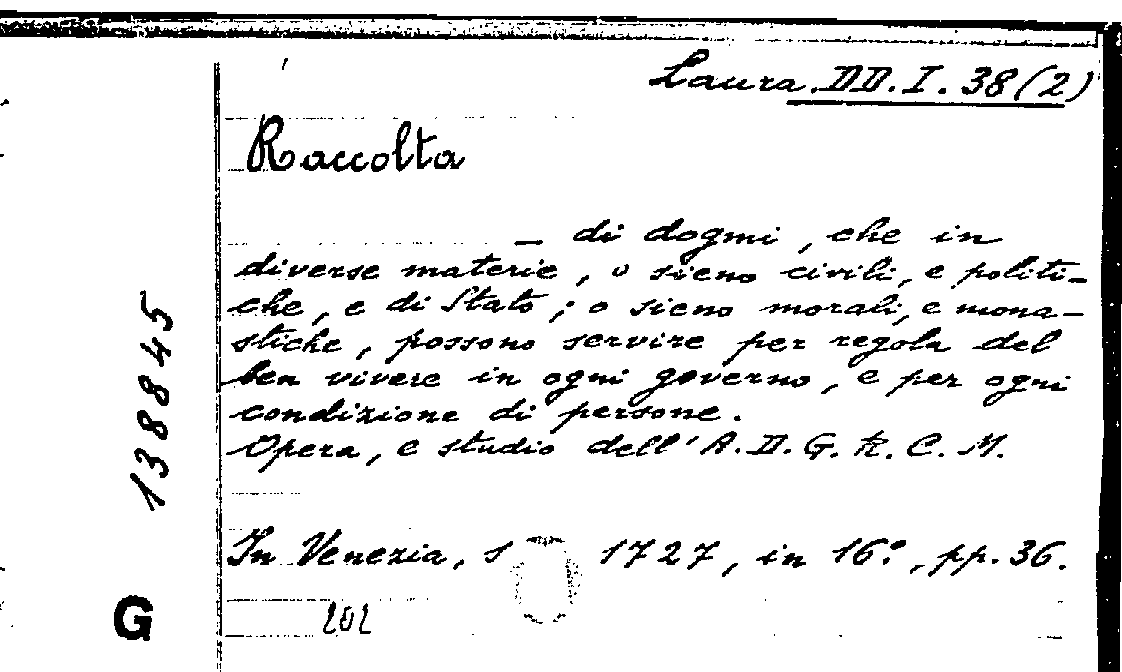 Laura. DD. I. 38 (2)
Raccolta
— di dogmi, che in
diverse materie, o sieno civili, e politi-
che, e di Stato; o sieno morali, e mona-
stiche, possono servire per regola del
ben vivere in ogni governo, e per ogni
condizione di persone.
Opera, e studio dell' A. D. G. R. C. M.
In Venezia, s 1727, in 16°, pp. 36.
202
138845
G